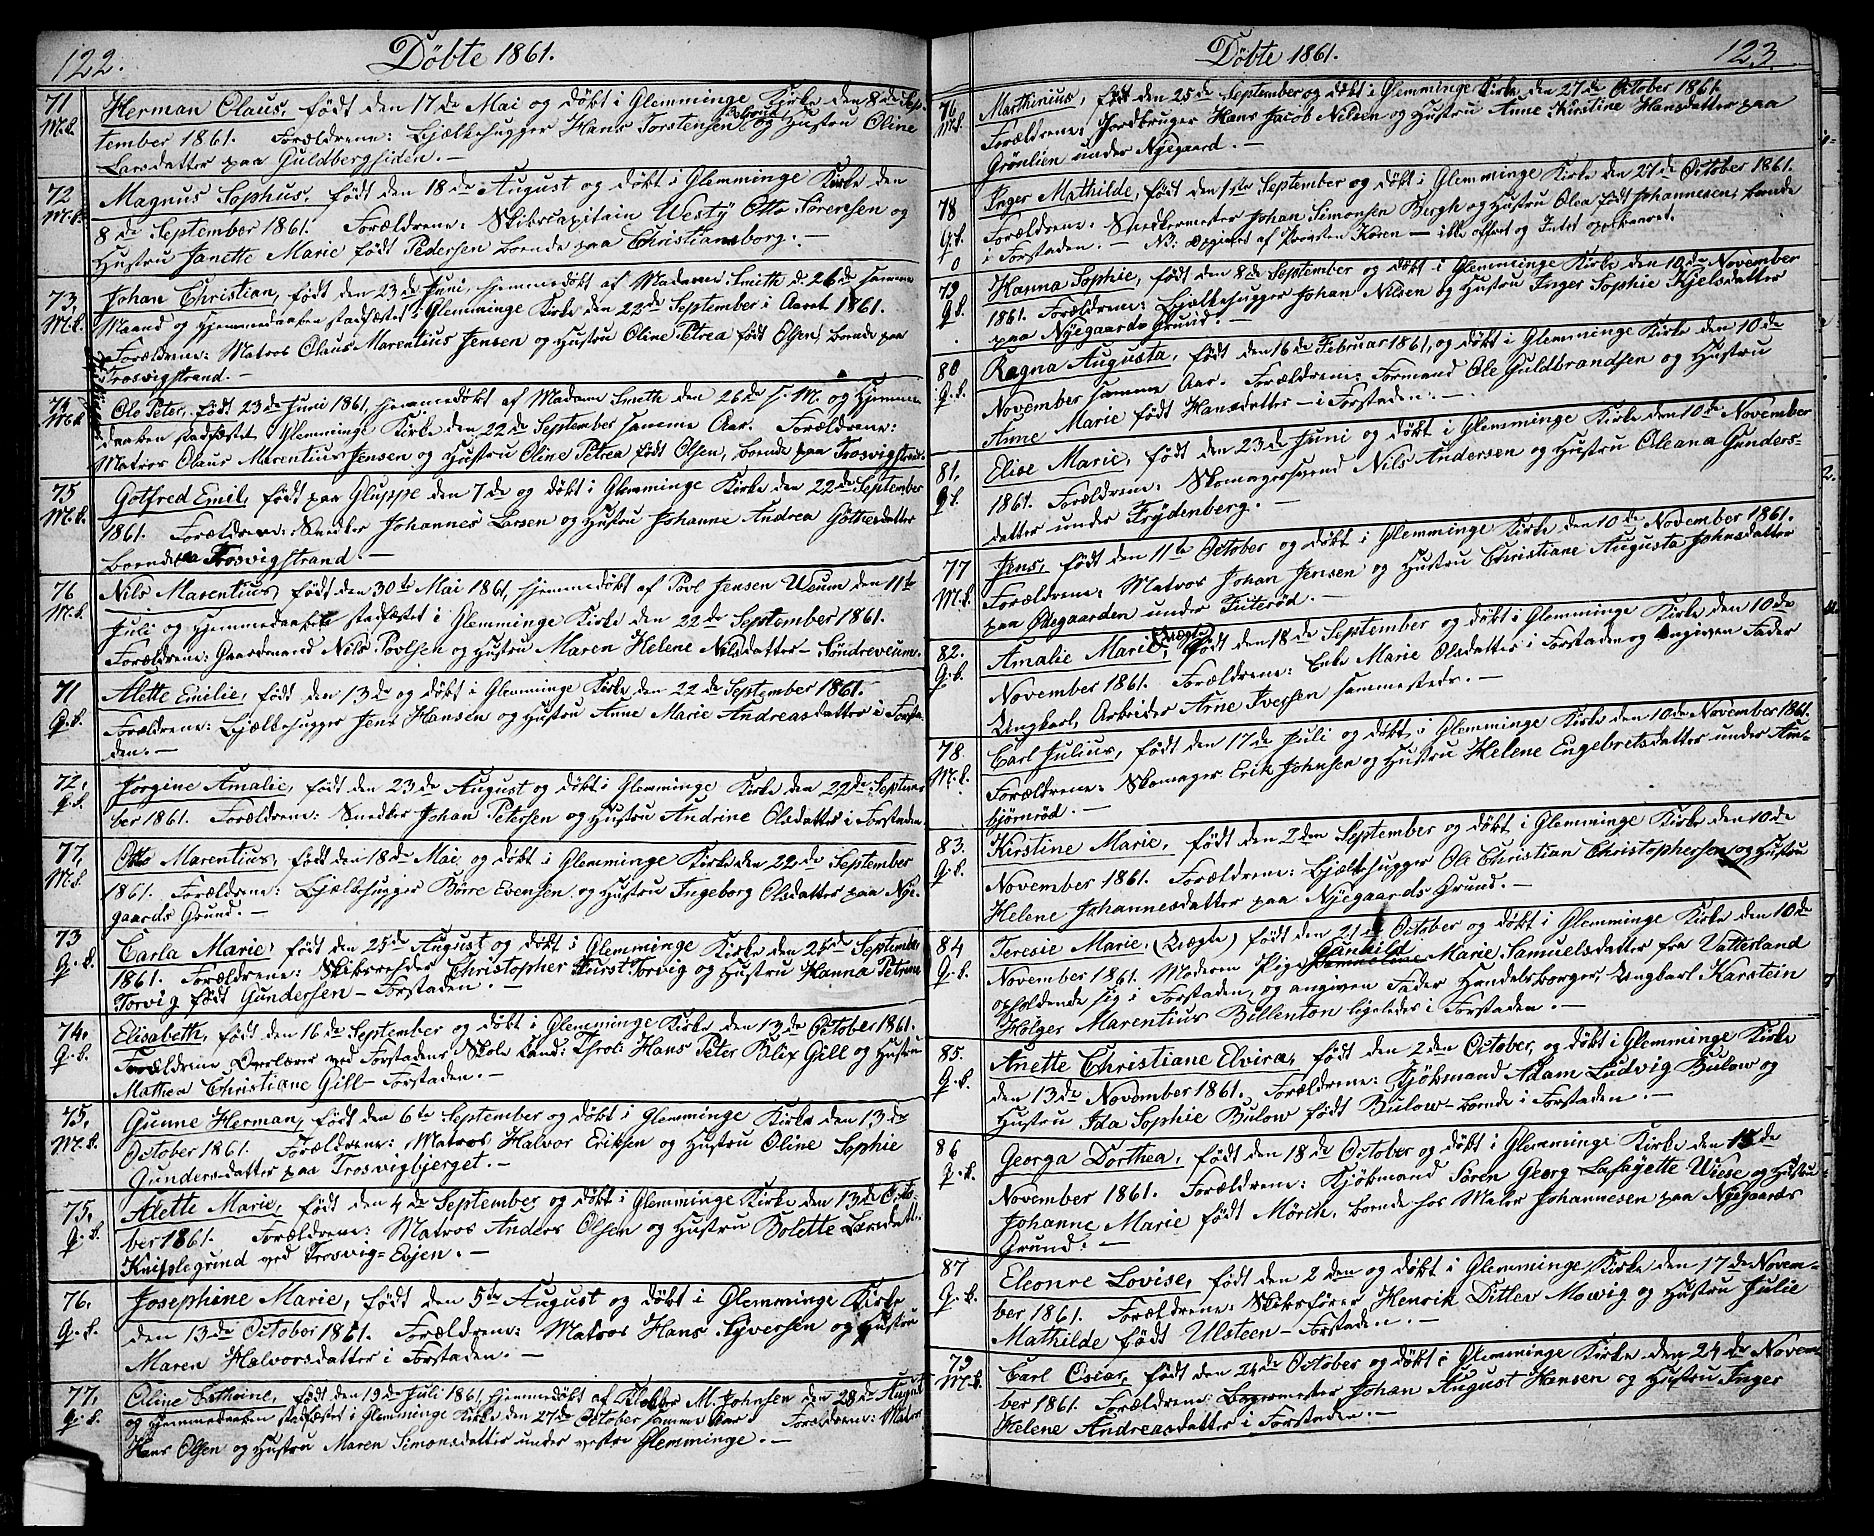 122.
Döbte 1861.
71 M.K. Herman Olaus, født den 17de Mai og døbt i Glemminge Kirke den 8de Sep-
tember 1861. Forældrene: Bjælkehugger Hans Torstensen og Hustru Oline
Larsdatter paa Guldbergsiden.—
72 M.K. Magnus Sophus, født den 18de August og døbt i Glemminge Kirke den
8de September 1861. Forældrene: Skibscapitain Westÿ Otto Sörensen og
Hustru Janette Marie født Pedersen boende paa Christiansborg.—
73 M.K. Johan Christian, født den 23de Juni, hjemmedøbt af Madame Smith d. 26de samme
Maaned og Hjemmedaaben stadfæstet i Glemminge Kirke den 22de September i Aaret 1861.
Forældrene: Matros Olaus Marentius Jensen og Hustru Oline Petrea født Olsen, boende paa
Trosvigstrand.—
74 M.K. Ole Peter, født 23de Juni 1861, hjemmedøbt af Madam Smith den 26de s. M. og Hjemme-
daaben stadfæstet i Glemminge Kirke den 22de September samme Aar. Forældrene:
Matros Olaus Marentius Jensen og Hustru Oline Petrea født Olsen, boende paa Trosvigstrand.
75 M.K. Gotfred Emil, født paa Gluppe den 7de og døbt i Glemminge Kirke den 22de September
1861. Forældrene: Snedker Johannes Larsen og Hustru Johanne Andrea
boende paa Trosvigstrand.—
76 M.K. Nils Marentius, født den 30te Mai 1861, hjemmedøbt af Povl Jensen Ueum den 11te
Juli og Hjemmedaaben stadfæstet i Glemminge Kirke den 22de September 1861.
Forældrene: Gaardmand Nils Povlsen og Hustru Maren Helene Nilsdatter— Söndreveum.
71 Q.K. Alette Emilie, født den 13de og døbt i Glemminge Kirke den 22de September 1861.
Forældrene: Bjælkehugger Jens Hansen og Hustru Anne Marie Andreasdatter i Forsta-
den.—
72. Q.K. Jörgine Amalie, født den 23de August og døbt i Glemminge Kirke den 22de Septem-
ber 1861. Forældrene: Snedker Johan Petersen og Hustru Andrine Olsdatter i Forstaden.
77. M.K. Otto Marentius, født den 18de Mai og døbt i Glemminge Kirke den 22de September
1861. Forældrene: Bjælkehugger Börre Evensen og Hustru Ingeborg Olsdatter paa Nye-
gaards Grund.—
73 Q.K. Carla Marie, født den 25de August og døbt i Glemminge Kirke den 25de September
1861. Forældrene: Skibsrheder Christopher Torvig og Hustru Hanna Petrine
Torvig født Gundersen— Forstaden.—
74. Q.K. Elisabeth, født den 16de September og døbt i Glemminge Kirke den 13de October 1861.
Forældrene Overlærer ved Forstadens Skole Cand: Theol: Hans Peter Blix Gill og Hustru
Mathea Christiane Gill— Forstaden.—
75. M.K. Gunne Herman, født den 6te September og døbt i Glemminge Kirke den 13de
October 1861. Forældrene: Matros Halvor Eriksen og Hustru Oline Sophie
Gundersdatter paa Trosvigbjerget.—
75. Q.K. Alette Marie, født den 4de September og døbt i Glemminge Kirke den 13de Octo-
ber 1861. Forældrene: Matros Anders Olsen og Hustru Bolette Larsdatter
Kniplegrind ved Trosvig=Evjen.—
76. Q.K. Josephine Marie, født den 5te August og døbt i Glemminge Kirke
den 13de October 1861. Forældrene: Matros Hans Syversen og Hustru
Maren Halvorsdatter i Forstaden.—
77. Q.K. Oline Cathrine, født den 19de Juli 1861 hjemmedøbt af Klokker M. Johnsen den 28de August
og Hjemmedaaben stadfæstet i Glemminge Kirke den 27de October samme Aar. Forældrene: Matros
Hans Olsen og Hustru Maren Simonsdatter under vestre Glemminge.—
Döbte 1861.
123.
76 M.K. Marthinius, født den 25de September og døbt i Glemminge Kirke den 27de October 1861.
Forældrene: Jordbruger Hans Jacob Nilsen og Hustru Anne Kirstine Hansdatter paa
Grönlien under Nyegaard.—
78 Q.K. Inger Mathilde, født den 1ste September og døbt i Glemminge Kirke den 27de October 1861.
Forældrene: Snedkermester Johan Simonsen Bergh og Hustru Olea født Johannesen, boende
i Forstaden.— NB. opgivet af Præsten Koren— ikke offret og Intet opskrevet.
79 Q.K. Hanna Sophie, født den 8de September og døbt i Glemminge Kirke den 10de November
1861. Forældrene: Bjælkehugger Johan Nilsen og Hustru Inger Sophie Kjelsdatter
paa Nyegaards Grund.—
80 Q.K. Ragna Augusta, født den 16de Februar 1861, og døbt i Glemminge Kirke den 10de
November samme Aar. Forældrene: Formand Ole Guldbrandsen og Hustru
Anne Marie født Hansdatter— i Forstaden.—
81. Q.K. Elise Marie, født den 23de Juni og døbt i Glemminge Kirke den 10de November
1861. Forældrene: Skomagersvend Nils Andersen og Hustru Oleana Gunders-
datter under Frydenberg.—
77 M.K. Jens, født den 11te October og døbt i Glemminge Kirke den 10de November 1861.
Forældrene: Matros Johan Jensen og Hustru Christiane Augusta Johnsdatter
paa Ødegaarden under Tuteröd.—
82. Q.K. Amalie Marie (Uægte) født den 18de September og døbt i Glemminge Kirke den 10de
November 1861. Forældrene: Enke Marie Olsdatter i Forstaden og angiven Fader
Ungkarl, Arbeider Arne Iversen sammesteds.—
78. M.K. Carl Julius, født den 17de Juli og døbt i Glemminge Kirke den 10de November 1861.
Forældrene: Skomager Erik Johnsen og Hustru Helene Engebretsdatter under Am-
björnröd.—
83. Q.K. Kirstine Marie, født den 2den September og døbt i Glemminge Kirke den 10de
November 1861. Forældrene: Bjælkehugger Ole Christian Christophersen og Hustru
Helene Johannesdatter paa Nyegaards Grund.—
84 Q.K. Teresie Marie, (Uægte) født den 21de October og døbt i Glemminge Kirke den 10de
November 1861. Moderen Pige Gunhild Marie Samuelsdatter fra Vatterland
opholdende sig i Forstaden, og angiven Fader Handelsborger, Ungkarl Karstein
Holger Marentius Billenton ligeledes i Forstaden.—
85. Q.K. Anette Christiane Elvira, født den 2den October, og døbt i Glemminge Kirke
den 13de November 1861. Forældrene: Kjöbmand Adam Ludvig Bulow og
Hustru Ida Sophie Bulow født Bulow— boende i Forstaden.—
86 Q.K. Georga Dorthea, født den 18de October og døbt i Glemminge Kirke den 15de
November 1861. Forældrene: Kjöbmand Sören Georg Lafayette Wiese og Hustru
Johanne Marie født Mörch, boende hos Mater Johannesen paa Nyegaards
Grund.—
87 Q.K. Eleonre Lovise, født den 2den og døbt i Glemminge Kirke den 17de Novem-
ber 1861. Forældrene: Skibsfører Henrik Ditlev Mowig og Hustru Julie
Mathilde født Ulsteen— Forstaden.—
79 M.K. Carl Oscar, født den 24de October og døbt i Glemminge Kirke den 24de Novem-
ber 1861. Forældrene: Bagermester Johan August Hansen og Hustru Inger
Helene Andreasdatter i Forstaden.—